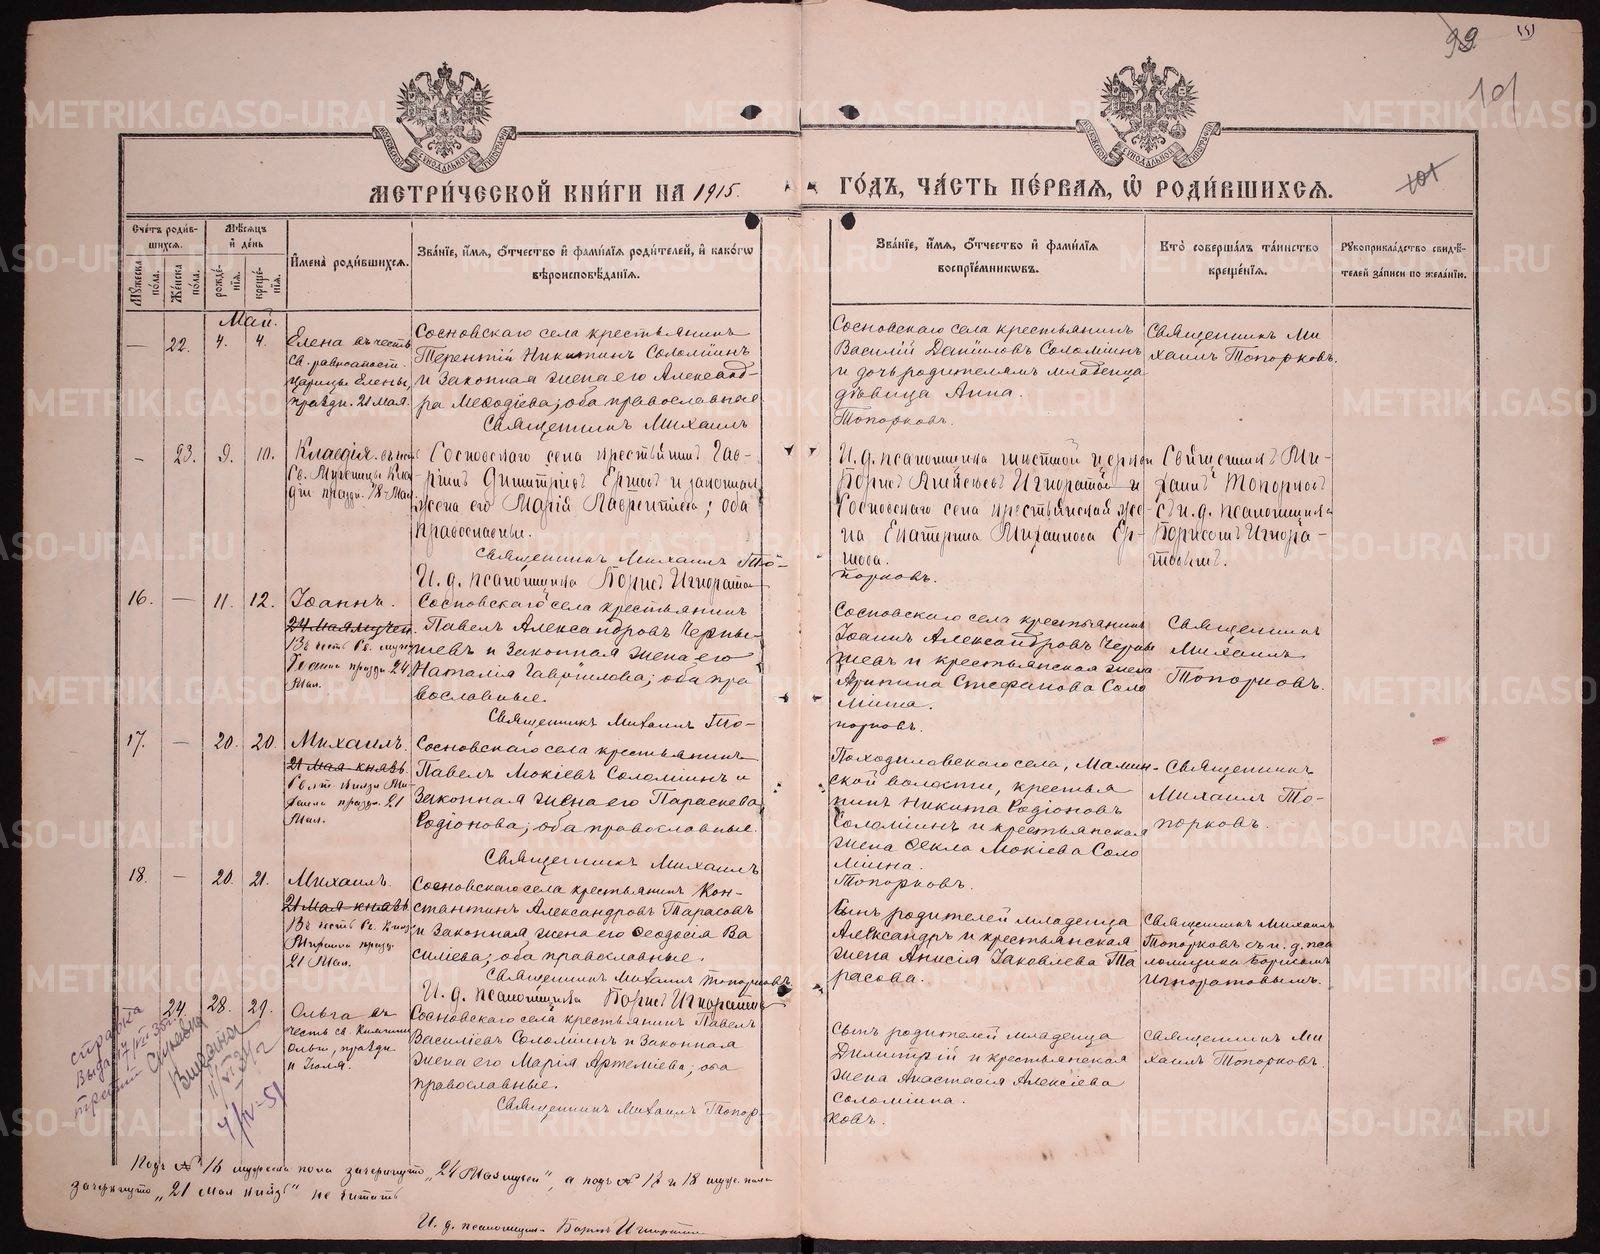 99
101
101
МЕТРИ́ЧЕСКОЙ КНИ́ГИ НА 1915. ГО́ДЪ, ЧА́СТЬ ПЕ́РВАЯ, Ѽ РОДИ́ВШИХСЯ.
Счетъ роди́вшихся.
Мꙋ́жеска по́ла.
Же́нска по́ла.
Мѣ́сяцъ и҆ де́нь
рожде́нїя.
креще́нїя.
И҆мена̀ роди́вшихся.
Зва́нїе, и҆́мя, ѻ҆́тчество и҆ фами́лїя роди́телей, и҆ како́гѡ вѣроисповѣ́данїя.
Зва́нїе, и҆́мя, ѻ҆́тчество и҆ фами́лїя воспрїе́мникѡвъ.
Кто̀ соверша́лъ та́инство креще́нїя.
Рꙋкоприкла́дство свидѣ́телей за́писи по жела́нїю.
Май.
— 22. 4. 4.
Елена въ честь
св. равноапост.
царицы Елены,
праздн. 21 мая.
Сосновскаго села крестьянинъ
Терентій Никитинъ Соломіинъ
и законная жена его Александ-
ра Меѳодіева; оба православные
Священникъ Михаилъ
Сосновскаго села крестьянинъ
Василій Даніиловъ Соломіинъ
и дочь родителямъ младенца
дѣвица Анна.
Топорковъ.
Священникъ Ми
хаилъ Топорковъ.
— 23. 9. 10.
Клавдія. въ честь
Св. Мученицы Клав
діи праздн. 18 Мая.
Сосновскаго села крестьянинъ Гав-
ріилъ Димитріевъ Ершовъ и законная
жена его Марія Лаврентіева; оба
православные.
Священникъ Михаилъ То-
И. д. псаломщика Борисъ Игноратовъ
И. д. псаломщика мѣстной церкви
Борисъ Алексѣевъ Игноратовъ и
Сосновскаго села крестьянская же-
на Екатерина Михаилова Ер-
шова.
порковъ.
Священникъ Ми-
хаилъ Топорковъ
съ и. д. псаломщика
Борисомъ Игнора-
товымъ.
16. — 11. 12.
Іоаннъ.
24 мая мучен.
Въ честь Св. муч.
Іоанна праздн. 24
Мая.
Сосновскаго села крестьянинъ
Павелъ Александровъ Черны-
шевъ и законная жена его
Наталія Гавріилова; оба пра
вославные.
Священникъ Михаилъ То-
Сосновскаго села крестьянинъ
Іоаннъ Александровъ Черны
шевъ и крестьянская жена
Агрипина Стефанова Соло
міина.
порковъ.
Священникъ
Михаилъ
Топорковъ.
17. — 20. 20.
Михаилъ.
21 мая князь
Михаила праздн. 21
Мая.
Сосновскаго села крестьянинъ
Павелъ Мокіевъ Соломіинъ и
законная жена его Параскева
Родіонова; оба православные.
Священникъ Михаилъ
Походиловскаго села, Мамин-
ской волости, крестья
нинъ Никита Родіоновъ
Соломіинъ и крестьянская
жена Ѳекла Мокіева Соло
міина.
Топорковъ.
Священникъ
Михаилъ То-
порковъ.
18. — 20. 21.
Михаилъ.
21 мая князь
Въ честь Св. Князя
Михаила праздн.
21 Мая.
Сосновскаго села крестьянинъ Кон-
стантинъ Александровъ Тарасовъ
и законная жена его Ѳеодосія Ва
силіева; оба православные.
Священникъ Михаилъ Топорковъ
И. д. псаломщика Борисъ Игноратовъ
Сынъ родителей младенца
Александръ и крестьянская
жена Анисія Іаковлева Та
расова.
Священникъ Михаилъ
Топорковъ съ и. д. пса
ломщика Борисомъ
Игноратовымъ.
24. 28. 29.
Ольга въ
честь св. Княгини
Ольги, праздн.
11 Іюля.
Сосновскаго села крестьянинъ Павелъ
Василіевъ Соломіинъ и законная
жена его Марія Артеміева; оба
православные.
Священникъ Михаилъ Топор-
Сынъ родителей младенца
Димитрій и крестьянская
жена Анастасія Алексіева
Соломіина.
ковъ.
Священникъ Ми
хаилъ Топорковъ.
справка
выдана
Справка
Выдана
4/IV-51
Подъ № 16 мужеска пола зачеркнуто „24 Мая мучен“, а подъ № 17 и 18 муж. пола
зачеркнуто „21 мая князь“ не читать
И. д. псаломщика Борисъ Игноратовъ
METRIKI.GASO-URAL.RU